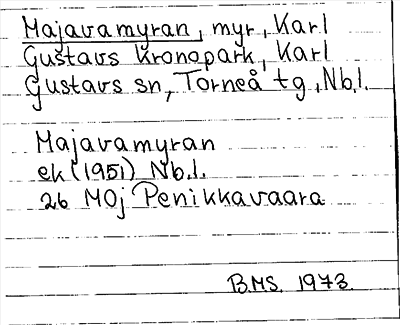 Majavamyran, myr, Karl
Gustavs Kronopark, Karl
Gustavs sn, Torneå tg, Nb.l.
Majavamyran
ek (1951) Nb.l.
26 MOj Penikkavaara
B.MS. 1973.